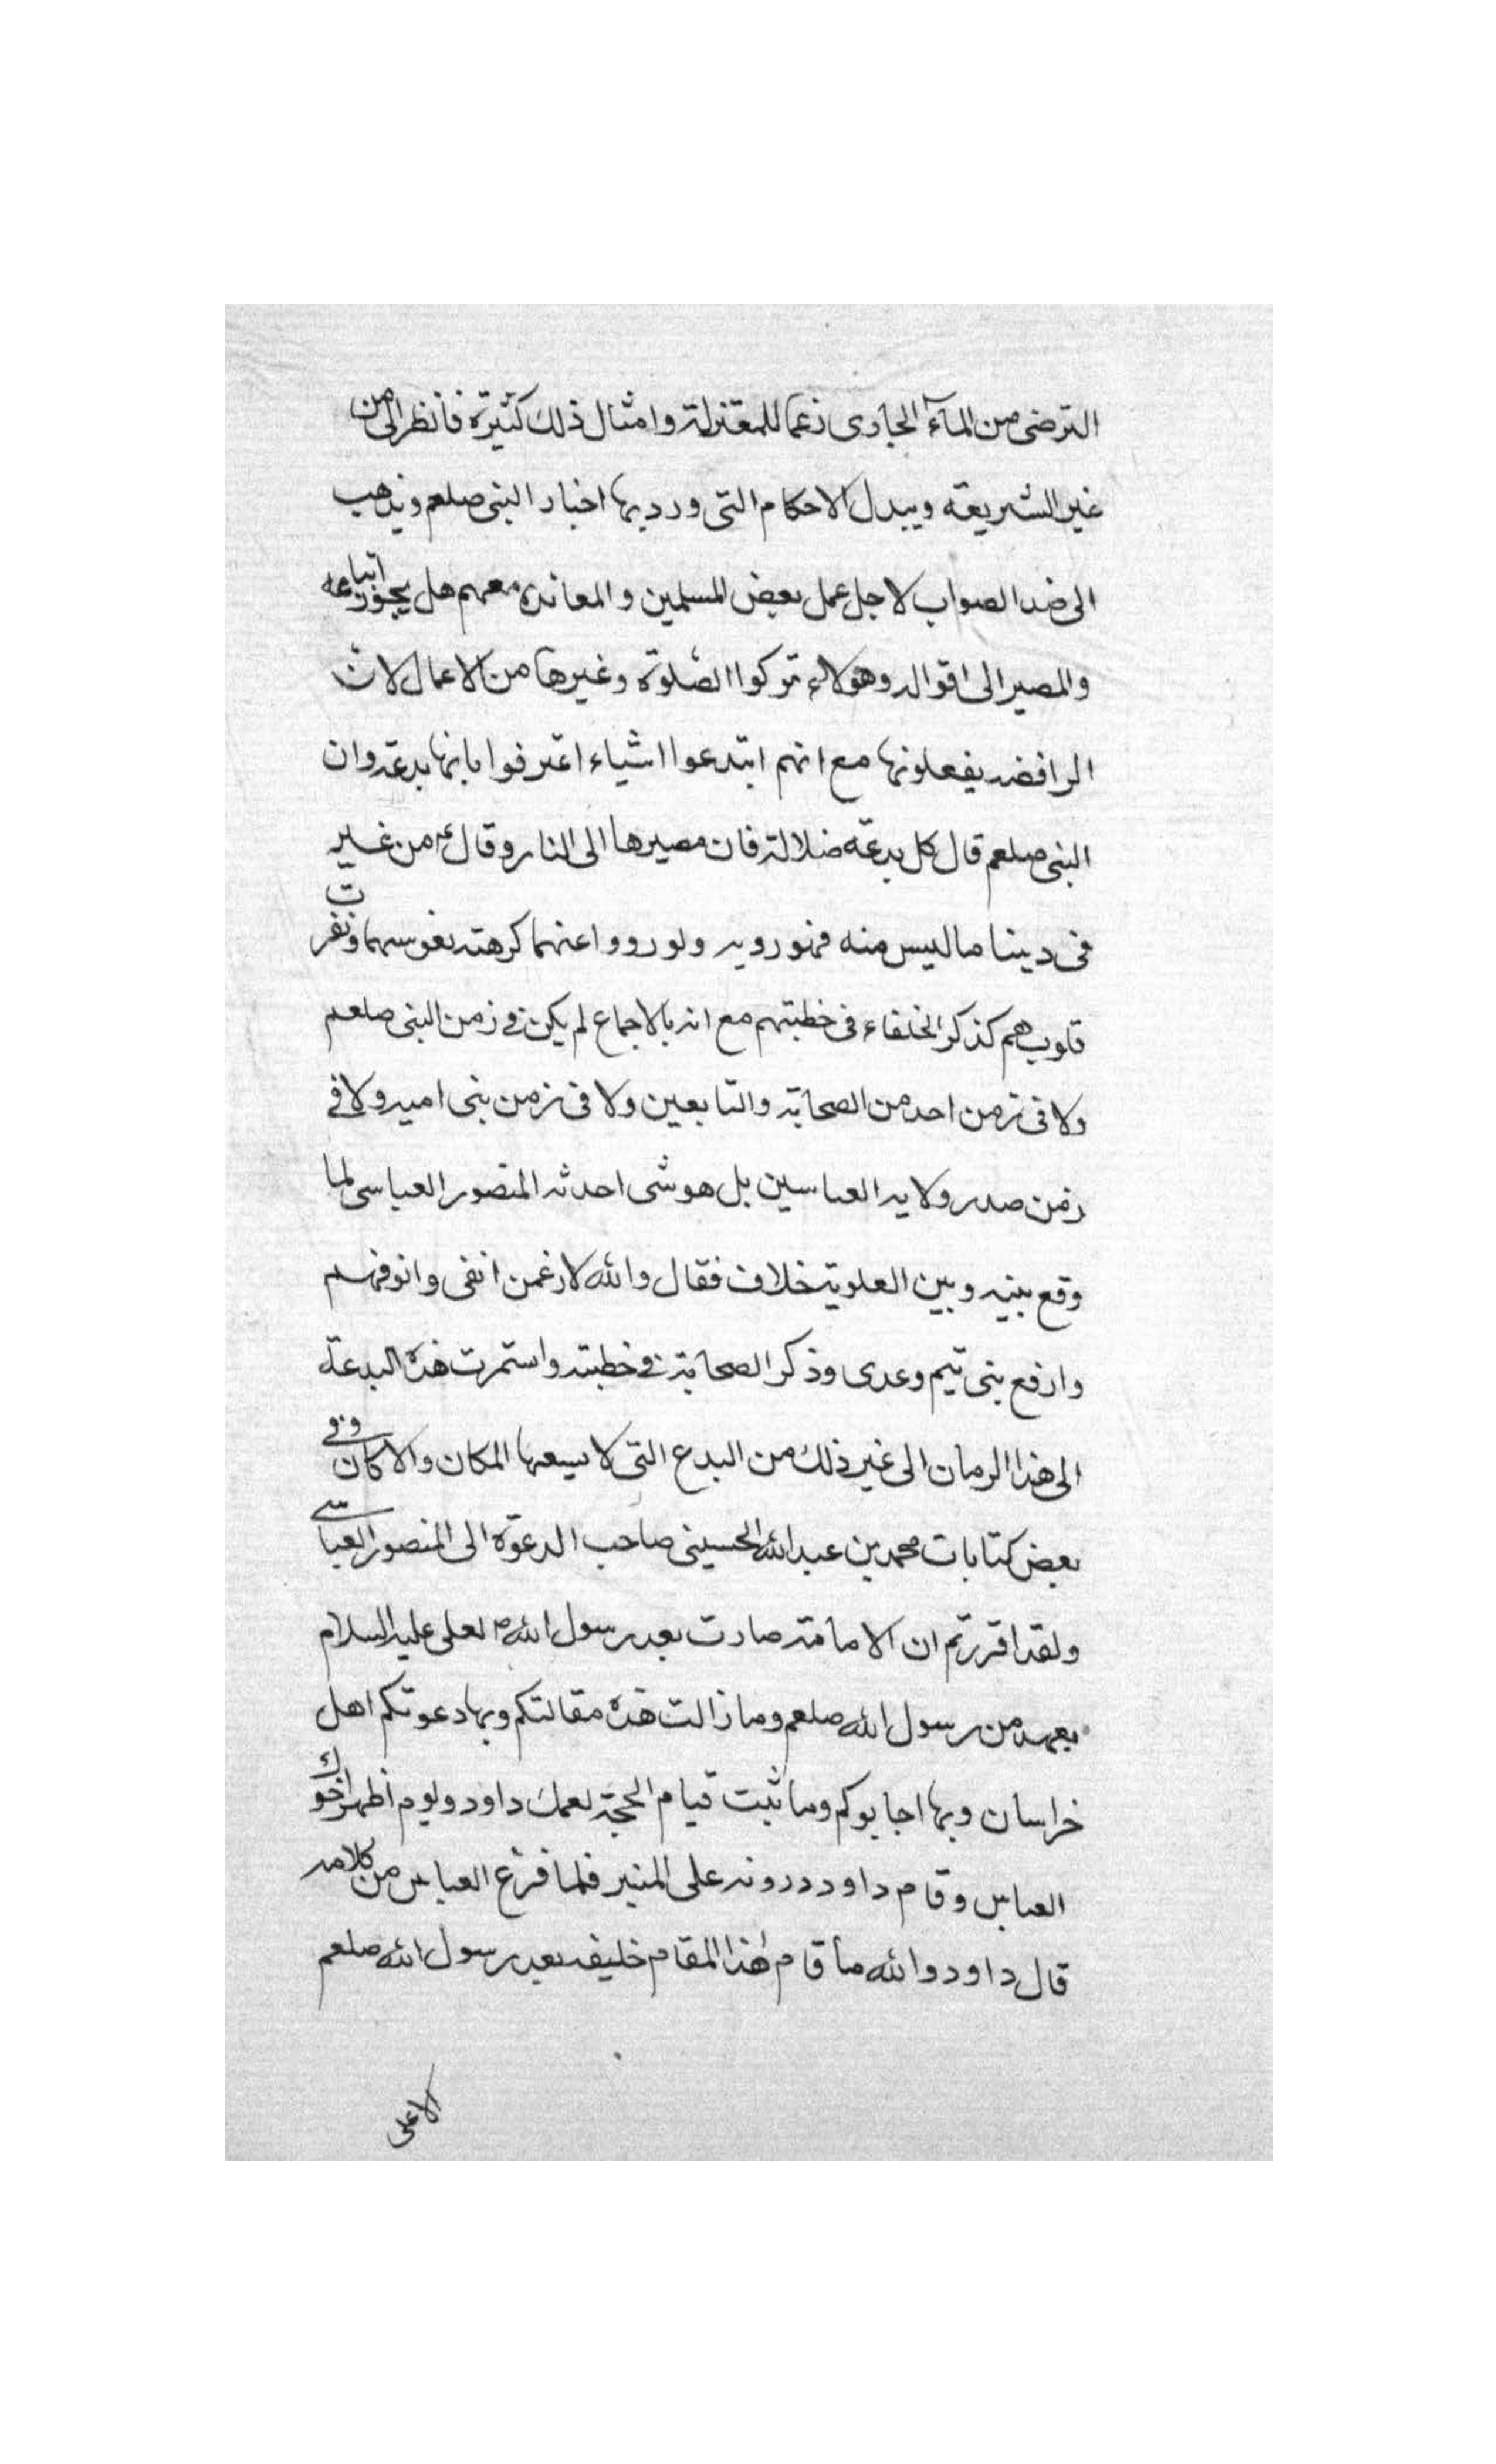 الترضى من المآء الجارى زعما للمعتزلة وامثال ذلك كثيرة فانظر الى من
غير الشريعة ويبدل الاحكام التى ورد بها اخبار النبى صلعم ويذهب
الى ضد الصواب لاجل عمل بعض المسلمين والمعانده معهم هل يجوز اتباعه
والمصير الى اقواله وهؤلاء تركوا الصلوة وغيرها من الاعمال لان
الرافضه يفعلونها مع انهم ابتدعوا اشياء اعترفوا بانها بدعة وان
النبى صلعم قال كل بدعة ضلالة فان مصيرها الى النار وقال ع من غير
فى ديننا ما ليس منه فهو رويه ولو رووا عنهما كرهته نفوسهما ونفرت
قلوبهم كذكر الخلفاء فى خطبتهم مع انه بالاجماع لم يكن فى زمن النبى صلعم
ولا فى زمن احد من الصحابة والتابعين ولا فى زمن بنى اميه ولا فى
زمن صدر ولايه العباسين بل هو شى احدثه المنصور العباسى لما
وقع بينه وبين العلوية خلاف فقال والله لارغمن انفى وانوفهم
وارفع بنى تيم وعدى وذكر الصحابة فى خطبته واستمرت هذه البدعة
الى هذا الزمان الى غير ذلك من البدع التى لا يسعها المكان والاكان وفى
بعض كتابات محمد بن عبد الله الحسينى صاحب الدعوة الى المنصور العباسى
ولقد اقررتم ان الامامة صارت بعد رسول الله ص لعلى عليه السلام
بعهد من رسول الله صلعم وما زالت هذه مقالتكم وبها دعوتكم اهل
خراسان وبها اجابوكم وما ثبت قيام الحجة لعمك داود ولوم اظهر اخوك
العباس وقام داود درونه على المنبر فلما فرغ العباس من كلامه
قال داود والله ما قام هذا المقام خليفه بعد رسول الله صلعم
الا على